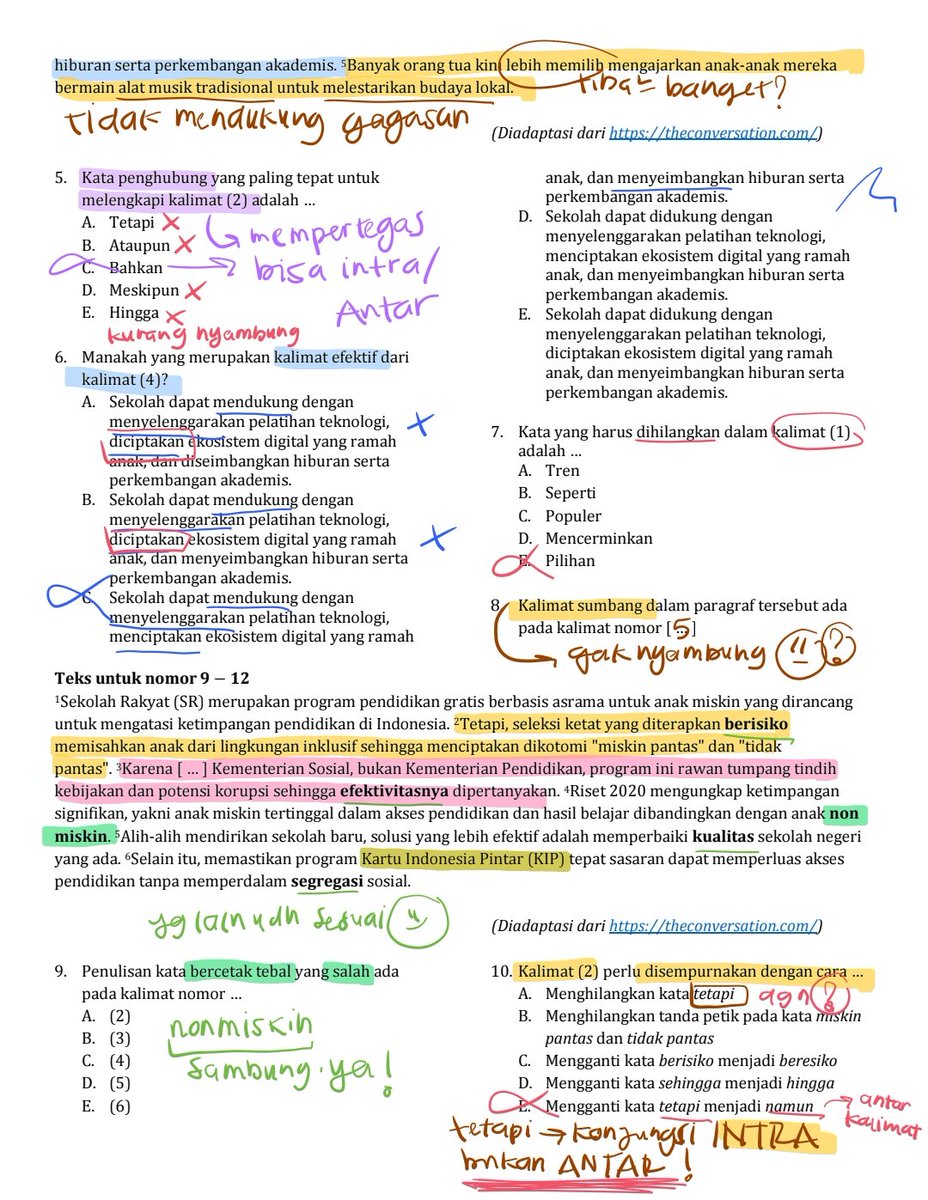 hiburan serta perkembangan akademis. ⁵Banyak orang tua kini lebih memilih mengajarkan anak-anak mereka
bermain alat musik tradisional untuk melestarikan budaya lokal.
tiba² banget?
tidak mendukung gagasan
(Diadaptasi dari https://theconversation.com/)
5. Kata penghubung yang paling tepat untuk
melengkapi kalimat (2) adalah ...
A. Tetapi
B. Ataupun
C. Bahkan
D. Meskipun
E. Hingga
mempertegas
bisa intra/
Antar
kurang nyambung
6. Manakah yang merupakan kalimat efektif dari
kalimat (4)?
A. Sekolah dapat mendukung dengan
menyelenggarakan pelatihan teknologi,
diciptakan ekosistem digital yang ramah
anak, dan diseimbangkan hiburan serta
perkembangan akademis.
B. Sekolah dapat mendukung dengan
menyelenggarakan pelatihan teknologi,
diciptakan ekosistem digital yang ramah
anak, dan menyeimbangkan hiburan serta
perkembangan akademis.
C. Sekolah dapat mendukung dengan
menyelenggarakan pelatihan teknologi,
menciptakan ekosistem digital yang ramah
anak, dan menyeimbangkan hiburan serta
perkembangan akademis.
D. Sekolah dapat didukung dengan
menyelenggarakan pelatihan teknologi,
menciptakan ekosistem digital yang ramah
anak, dan menyeimbangkan hiburan serta
perkembangan akademis.
E. Sekolah dapat didukung dengan
menyelenggarakan pelatihan teknologi,
diciptakan ekosistem digital yang ramah
anak, dan menyeimbangkan hiburan serta
perkembangan akademis.
7. Kata yang harus dihilangkan dalam kalimat (1)
adalah ...
A. Tren
B. Seperti
C. Populer
D. Mencerminkan
E. Pilihan
8. Kalimat sumbang dalam paragraf tersebut ada
pada kalimat nomor [5]
gak nyambung !! ?
Teks untuk nomor 9 – 12
¹Sekolah Rakyat (SR) merupakan program pendidikan gratis berbasis asrama untuk anak miskin yang dirancang
untuk mengatasi ketimpangan pendidikan di Indonesia. ²Tetapi, seleksi ketat yang diterapkan berisiko
memisahkan anak dari lingkungan inklusif sehingga menciptakan dikotomi "miskin pantas" dan "tidak
pantas". ³Karena [ ... ] Kementerian Sosial, bukan Kementerian Pendidikan, program ini rawan tumpang tindih
kebijakan dan potensi korupsi sehingga efektivitasnya dipertanyakan. ⁴Riset 2020 mengungkap ketimpangan
signifikan, yakni anak miskin tertinggal dalam akses pendidikan dan hasil belajar dibandingkan dengan anak non
miskin. ⁵Alih-alih mendirikan sekolah baru, solusi yang lebih efektif adalah memperbaiki kualitas sekolah negeri
yang ada. ⁶Selain itu, memastikan program Kartu Indonesia Pintar (KIP) tepat sasaran dapat memperluas akses
pendidikan tanpa memperdalam segregasi sosial.
yg lain udh sesuai
(Diadaptasi dari https://theconversation.com/)
9. Penulisan kata bercetak tebal yang salah ada
pada kalimat nomor ...
A. (2)
B. (3)
C. (4)
D. (5)
E. (6)
nonmiskin
sambung ya!
10. Kalimat (2) perlu disempurnakan dengan cara ...
A. Menghilangkan kata tetapi
agn ?
B. Menghilangkan tanda petik pada kata miskin
pantas dan tidak pantas
C. Mengganti kata berisiko menjadi beresiko
D. Mengganti kata sehingga menjadi hingga
E. Mengganti kata tetapi menjadi namun
antar
kalimat
tetapi → konjungsi INTRA
bukan ANTAR!